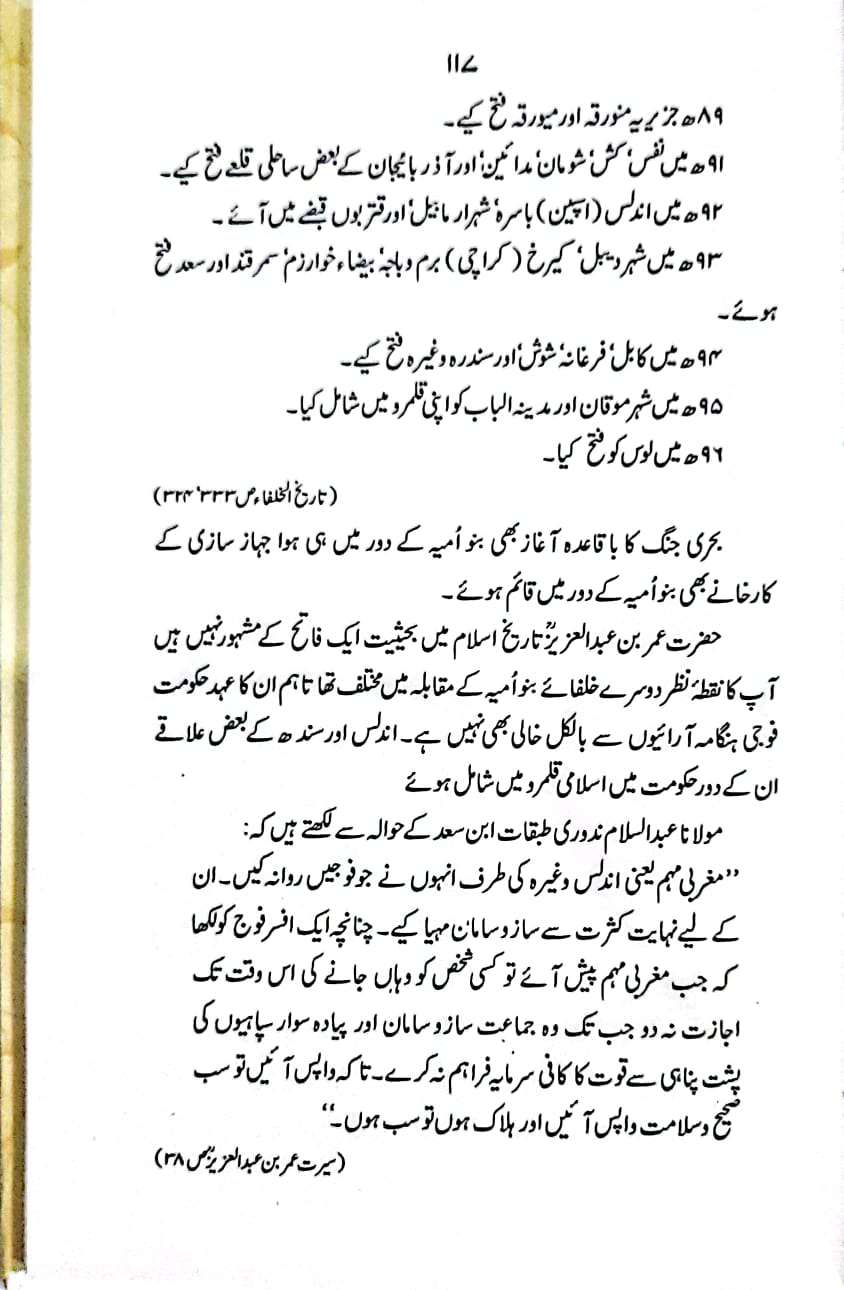 ۱۱۷
۸۹ھ جزیریہ منورقہ اور میورقہ فتح کیے۔
۹۱ھ میں نفس‘ کش‘ شومان‘ مدائین‘ اور آذربائیجان کے بعض ساحلی قلعے فتح کیے۔
۹۲ھ میں اندلس (اسپین) باسرہ‘ شہر ارمابیل‘ اور قتربوں قبضے میں آئے ۔
۹۳ھ میں شہر دیبل‘ کیرخ (کراچی) برم وباجہ‘ بیضاء خوارزم‘ سمرقند اور سعد فتح
ہوئے۔
۹۴ھ میں کابل‘ فرغانہ‘ شوش‘ اور سندرہ وغیرہ فتح کیے۔
۹۵ھ میں شہر موقان اور مدینہ الباب کو اپنی قلمرو میں شامل کیا۔
۹۶ھ میں لوس کو فتح کیا۔
(تاریخ الخلفاء ص ۳۳۳‘ ۳۲۴)
بحری جنگ کا باقاعدہ آغاز بھی بنو اُمیہ کے دور میں ہی ہوا جہاز سازی کے
کارخانے بھی بنو اُمیہ کے دور میں قائم ہوئے۔
حضرت عمر بن عبدالعزیزؒ تاریخ اسلام میں بحیثیت ایک فاتح کے مشہور نہیں ہیں
آپ کا نقطۂ نظر دوسرے خلفائے بنو اُمیہ کے مقابلہ میں مختلف تھا تاہم ان کا عہد حکومت
فوجی ہنگامہ آرائیوں سے بالکل خالی بھی نہیں ہے۔ اندلس اور سندھ کے بعض علاقے
ان کے دور حکومت میں اسلامی قلمرو میں شامل ہوئے
مولانا عبدالسلام ندوری طبقات ابن سعد کے حوالہ سے لکھتے ہیں کہ:
’’مغربی مہم یعنی اندلس وغیرہ کی طرف انہوں نے جو فوجیں روانہ کیں۔ ان
کے لیے نہایت کثرت سے سازوسامان مہیا کیے۔ چنانچہ ایک افسر فوج کو لکھا
کہ جب مغربی مہم پیش آئے تو کسی شخص کو وہاں جانے کی اس وقت تک
اجازت نہ دو جب تک وہ جماعت سازوسامان اور پیادہ سوار سپاہیوں کی
پشت پناہی سے قوت کا کافی سرمایہ فراہم نہ کرے۔ تاکہ واپس آئیں تو سب
صحیح وسلامت واپس آئیں اور ہلاک ہوں تو سب ہوں۔‘‘
(سیرت عمر بن عبدالعزیزؒ ص ۳۸)